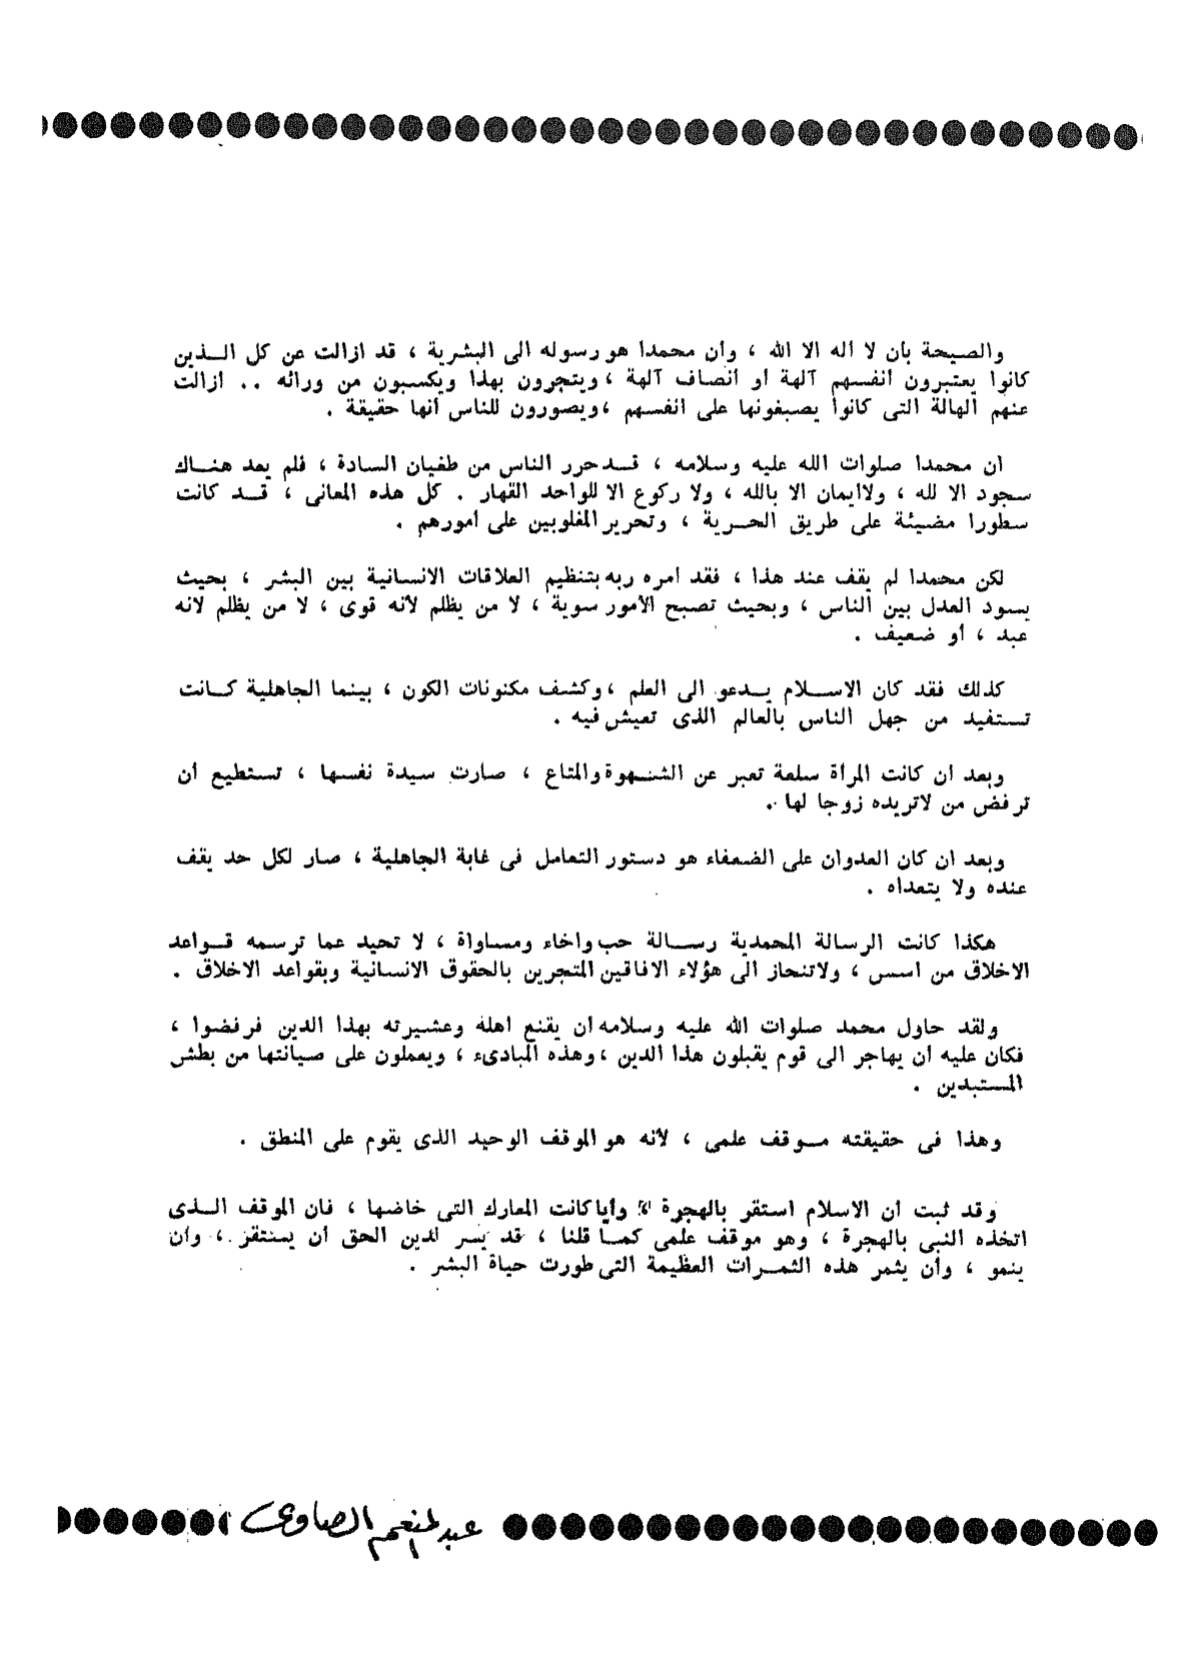 والصيحة بأن لا اله الا الله ، وأن محمدا هو رسوله الى البشرية ، قد ازالت عن كل الـذين
كانوا يعتبرون أنفسهم آلهة أو أنصاف آلهة ، ويتجرون بهذا ويكسبون من ورائه .. ازالت
عنهم الهالة التى كانوا يصبغونها على أنفسهم ، ويصورون للناس أنها حقيقة .
ان محمدا صلوات الله عليه وسلامه ، قـد حرر الناس من طغيان السادة ، فلم يعد هنـاك
سجود الا لله ، ولا ايمان الا بالله ، ولا ركوع الا للواحد القهار . كل هذه المعانى ، قـد كانت
سطورا مضيئة على طريق الحـرية ، وتحرير المغلوبين على أمورهم .
لكن محمدا لم يقف عند هذا ، فقد أمره ربه بتنظيم العلاقات الانسانية بين البشر ، بحيث
يسود العدل بين الناس ، وبحيث تصبح الأمور سوية ، لا من يظلم لأنه قوى ، لا من يظلم لأنه
عبد ، أو ضعيف .
كذلك فقد كان الاسـلام يـدعو الى العلم ، وكشف مكنونات الكون ، بينما الجاهلية كـانت
تستفيد من جهل الناس بالعالم الذى تعيش فيه .
وبعد ان كانت المرأة سلعة تعبر عن الشـهوة والمتاع ، صارت سيدة نفسها ، تستطيع أن
ترفض من لاتريده زوجا لها .
وبعد ان كان العدوان على الضعفاء هو دستور التعامل فى غابة الجاهلية ، صار لكل حد يقف
عنده ولا يتعداه .
هكذا كانت الرسالة المحمدية رسـالة حب واخاء ومساواة ، لا تحيد عما ترسمه قـواعد
الاخلاق من أسس ، ولاتنحاز الى هؤلاء الافاقين المتجرين بالحقوق الانسانية وبقواعد الاخلاق .
ولقد حاول محمد صلوات الله عليه وسلامه أن يقنع أهله وعشيرته بهذا الدين فرفضوا ،
فكان عليه ان يهاجر الى قوم يقبلون هذا الدين ، وهذه المبادىء ، ويعملون على صيانتها من بطش
المستبدين .
وهذا فى حقيقته مـوقف علمى ، لأنه هو الموقف الوحيد الذى يقوم على المنطق .
وقد ثبت أن الاسلام استقر بالهجرة ، وأيا كانت المعارك التى خاضها ، فان الموقف الـذى
اتخذه النبى بالهجرة ، وهو موقف علمى كمـا قلنا ، قد يسـر لدين الحق أن يستقر ، وأن
ينمو ، وأن يثمر هذه الثمـرات العظيمة التى طورت حياة البشر .
عبد المنعم الصاوى